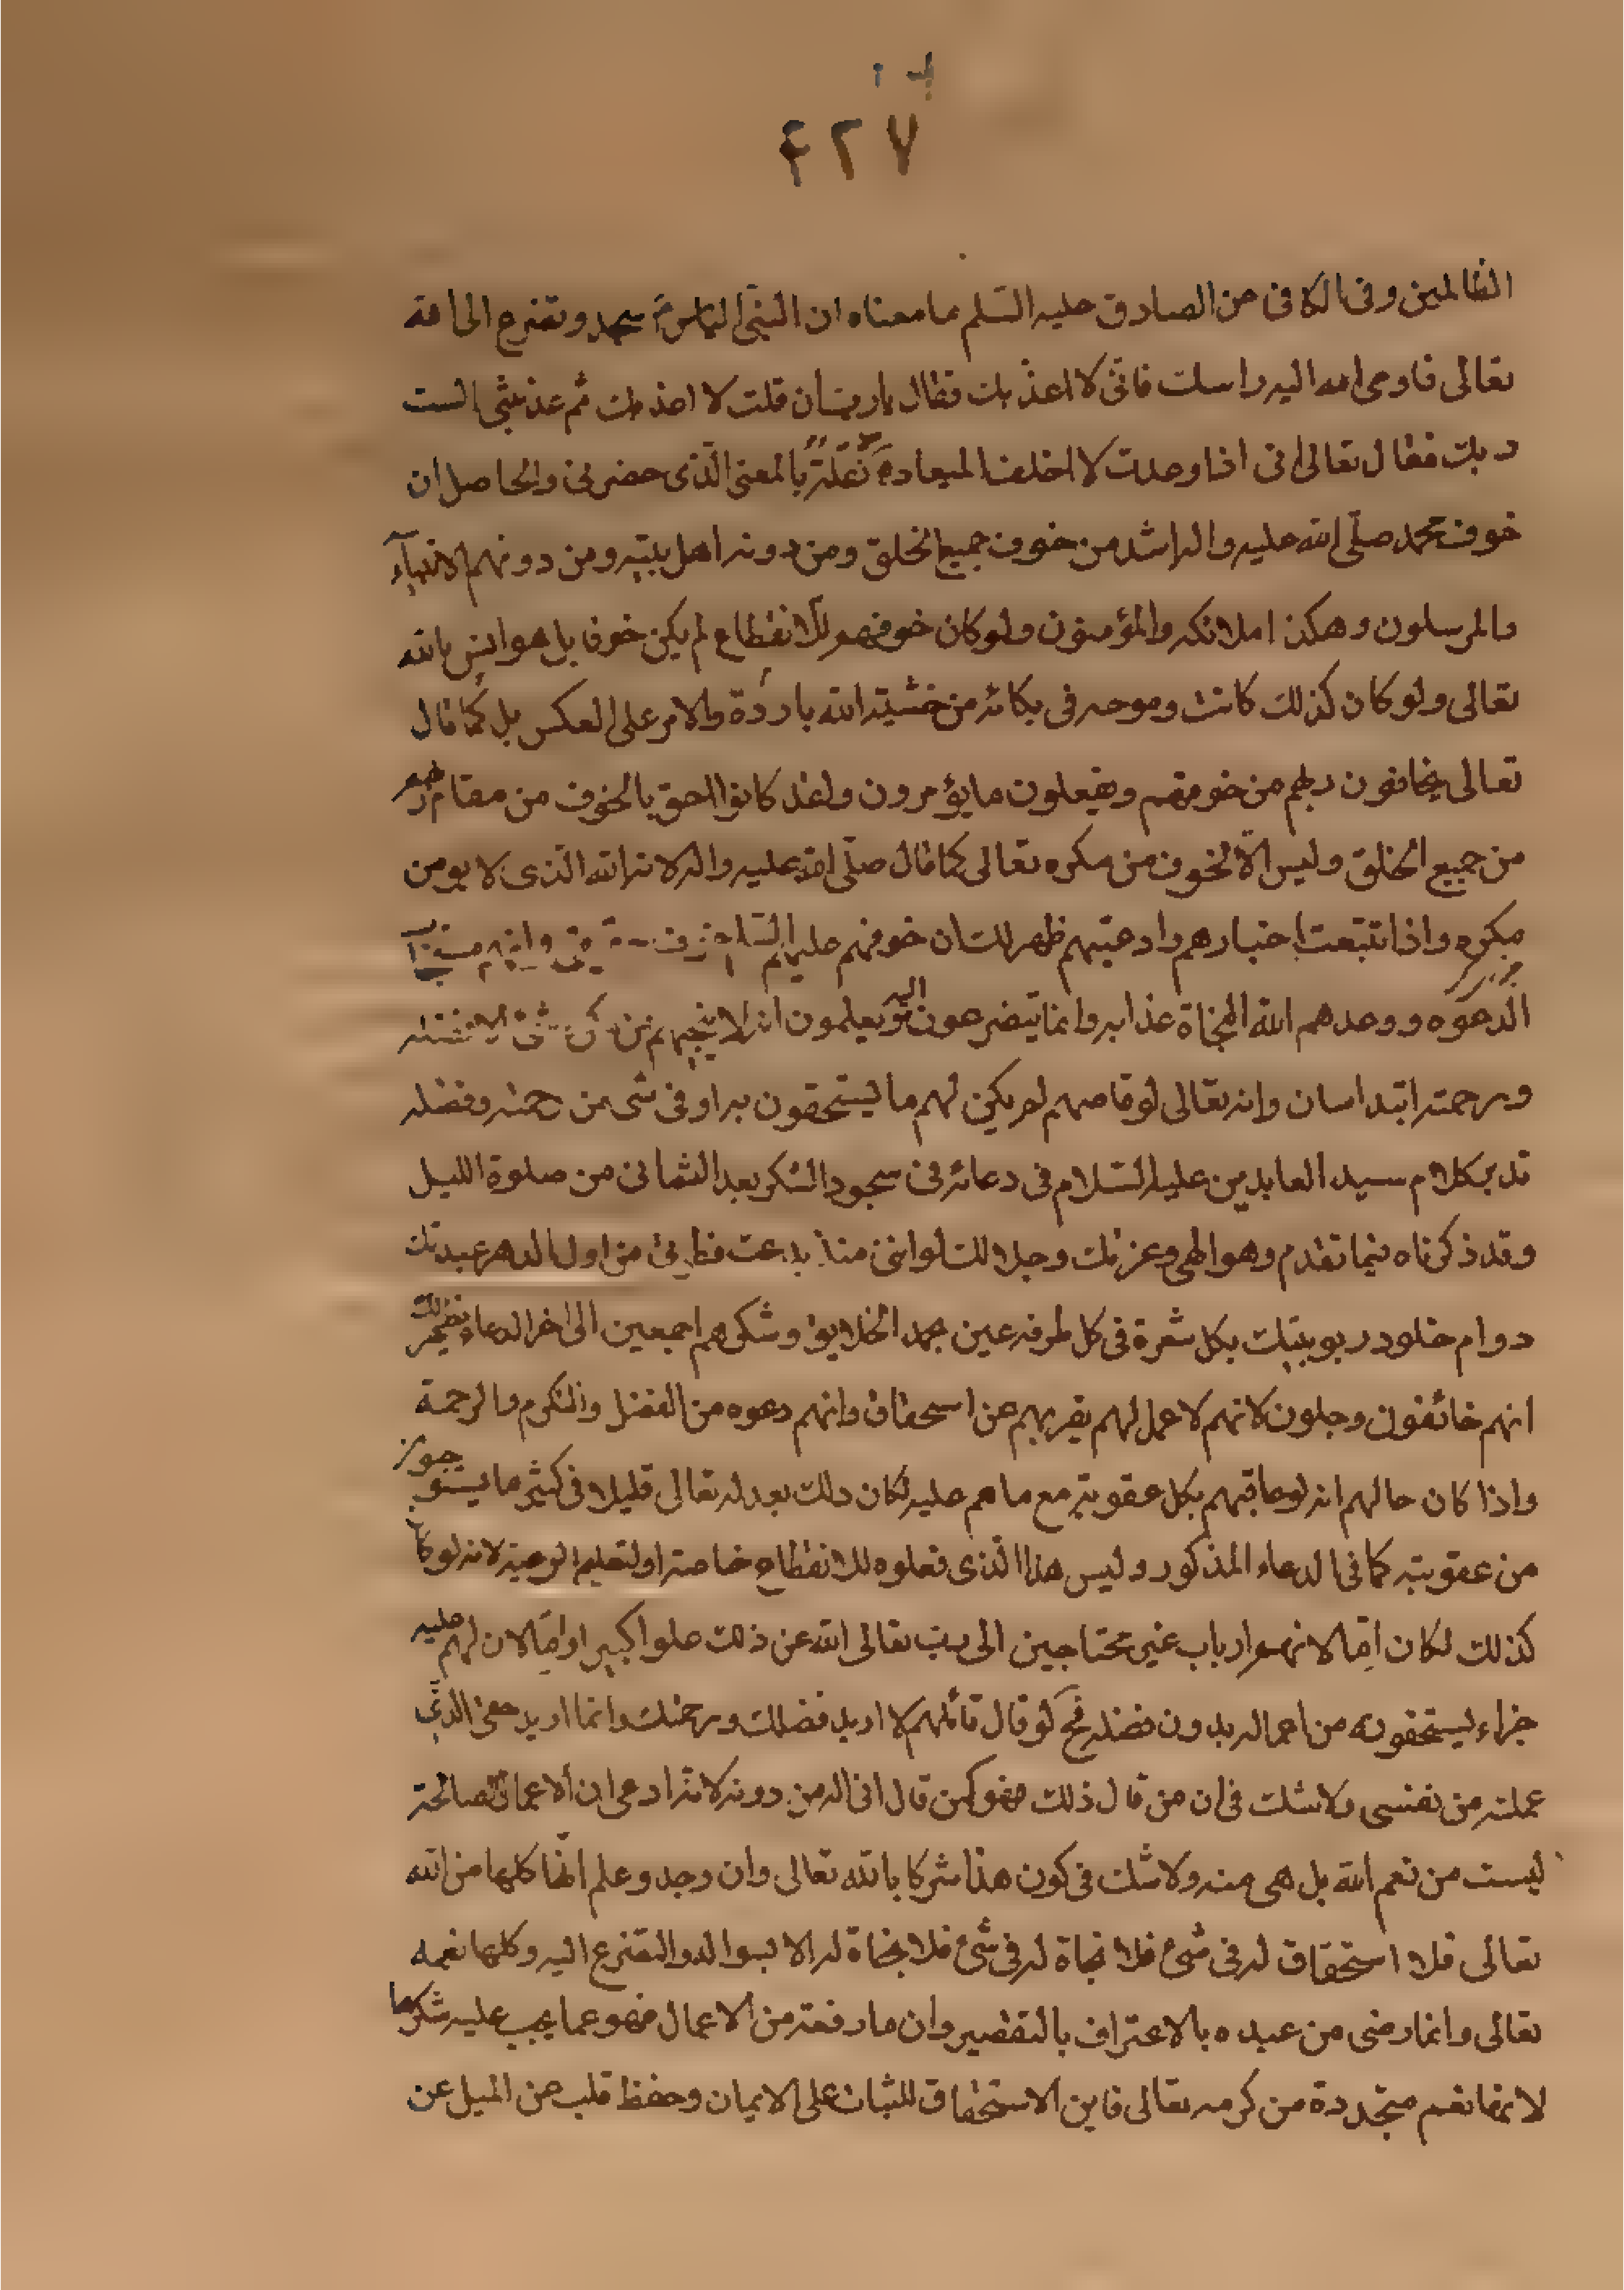 ٤٢٧
الظالمين وفى الكافى عن الصادق عليه السّلم ما معناه ان النبىّ الياس سجد وتضرع الى الله
تعالى فاوحى الله اليه راسك فانّى لا اعذّبك فقال يا رب ان قلت لا اعذبك ثم عذبتنى الست
ربك فقال تعالى انى اذا وعدت لا اخلف الميعاد نقلته بالمعنى الّذى حضرنى والحاصل ان
خوف محمد صلّى الله عليه واله اشد من خوف جميع الخلق ومن دونه اهل بيته ومن دونهم الانبياء
والمرسلون وهكذا ملائكه والمؤمنون ولو كان خوفهم للانقطاع لم يكن خوفا بل هو انس بالله
تعالى ولو كان كذلك كانت دموعه فى بكائه من خشية الله باردة والامر على العكس بل كما قال
تعالى يخافون ربهم من فوقهم ويفعلون ما يؤمرون ولقد كانوا احق بالخوف من مقام ربهم
من جميع الخلق وليس الّا لخوف من مكره تعالى كما قال صلّى الله عليه واله لانه الله الّذى لا يومن
مكره واذا تتبعت اخبارهم وادعيتهم ظهر لك ان خوفهم عليهم السّلم خوف وانهم
الدعوه ووعدهم الله النجاة عذابه وانما يتضرعون اليه يعلمون انه لا ينجيهم من
وبرحمته ابتدا سان وانه تعالى لو قاصهم لم يكن لهم ما يستحقون به او فى شى من رحمته وفضله
تدبر كلام سيد العابدين عليه السّلام فى دعائه فى سجود الشكر بعد الثمانى من صلوة الليل
وقد ذكرناه فيما تقدم وهو الهى وعزتك وجلالك لو اننى منذ بدعت فطرتى من اول الدهر عبدتك
دوام خلود ربوبيتك بكل شعرة فى كل طرفه عين بحمد الخلايق وشكرهم اجمعين الى اخر الدعاء يظهر لك
انهم خائفون وجلون لانهم لا عمل لهم يقربهم عن استحقاق وانهم دعوه من الفضل والكرم والرحمة
واذا كان حالهم انه لو عاقبهم بكل عقوبته مع ما هم عليه لكان ذلك بعدله تعالى قليلا فى كثير ما يستوجبون
من عقوبته كما فى الدعاء المذكور وليس هذا الّذى فعلوه للانقطاع خاصة او لتعليم الرعية لانه لو كان
كذلك لكان امّا لانهم ارباب غير محتاجين الى رب تعالى الله عن ذلك علوا كبيرا وامّا لان لهم عليه
جزاء يستحقونه من اعماله بدون فضله فح لو قال قائلهم لا اريد فضلك ورحمتك وانما اريد حقى الذى
عملته من نفسى ولا شك فى ان من قال ذلك فهو كمن قال انى اله من دونه لانه ادعى ان الاعمال الصالحة
ليست من نعم الله بل هى منه ولا شك فى كون هذا شركا بالله تعالى وان وجد وعلم انّها كلها من الله
تعالى فلا استحقاق له فى شىء فلا نجاة له فى شىء فلا نجاة له الا بسوال والتضرع اليه وكلها نعمه
تعالى وانما رضى من عبده بالاعتراف بالتقصير وان ما رفعته من الاعمال فهو مما يجب عليه شكرها
لانها نعم متجددة من كرمه تعالى فاين الاستحقاق للثبات على الايمان وحفظ قلب عن الميل عن